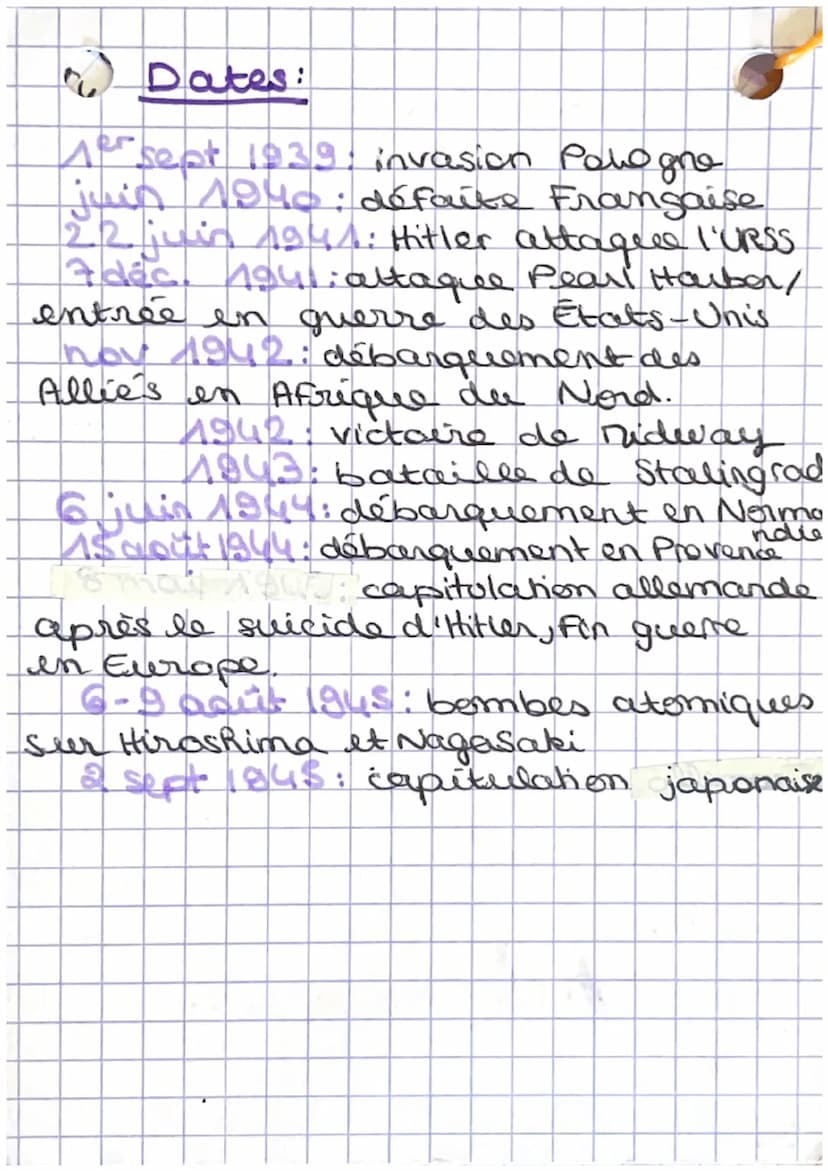 Dates:
1er sept 1939: invasion Pologne
juin 1940: défaite Française
22 juin 1941: Hitler attaque l'URSS
7 déc. 1941: attaque Pearl Harbor/
entrée en guerre des États-Unis
nov 1942: débarquement des
Alliés en Afrique du Nord.
1942: victoire de Midway
1943: bataille de Stalingrad
6 juin 1944: débarquement en Norma
ndie
15 août 1944: débarquement en Provence
8 mai 1945: capitulation allemande
après le suicide d'Hitler, fin guerre
en Europe.
6-9 août 1945: bombes atomiques
sur Hiroshima et Nagasaki
2 sept 1945: capitulation japonaise